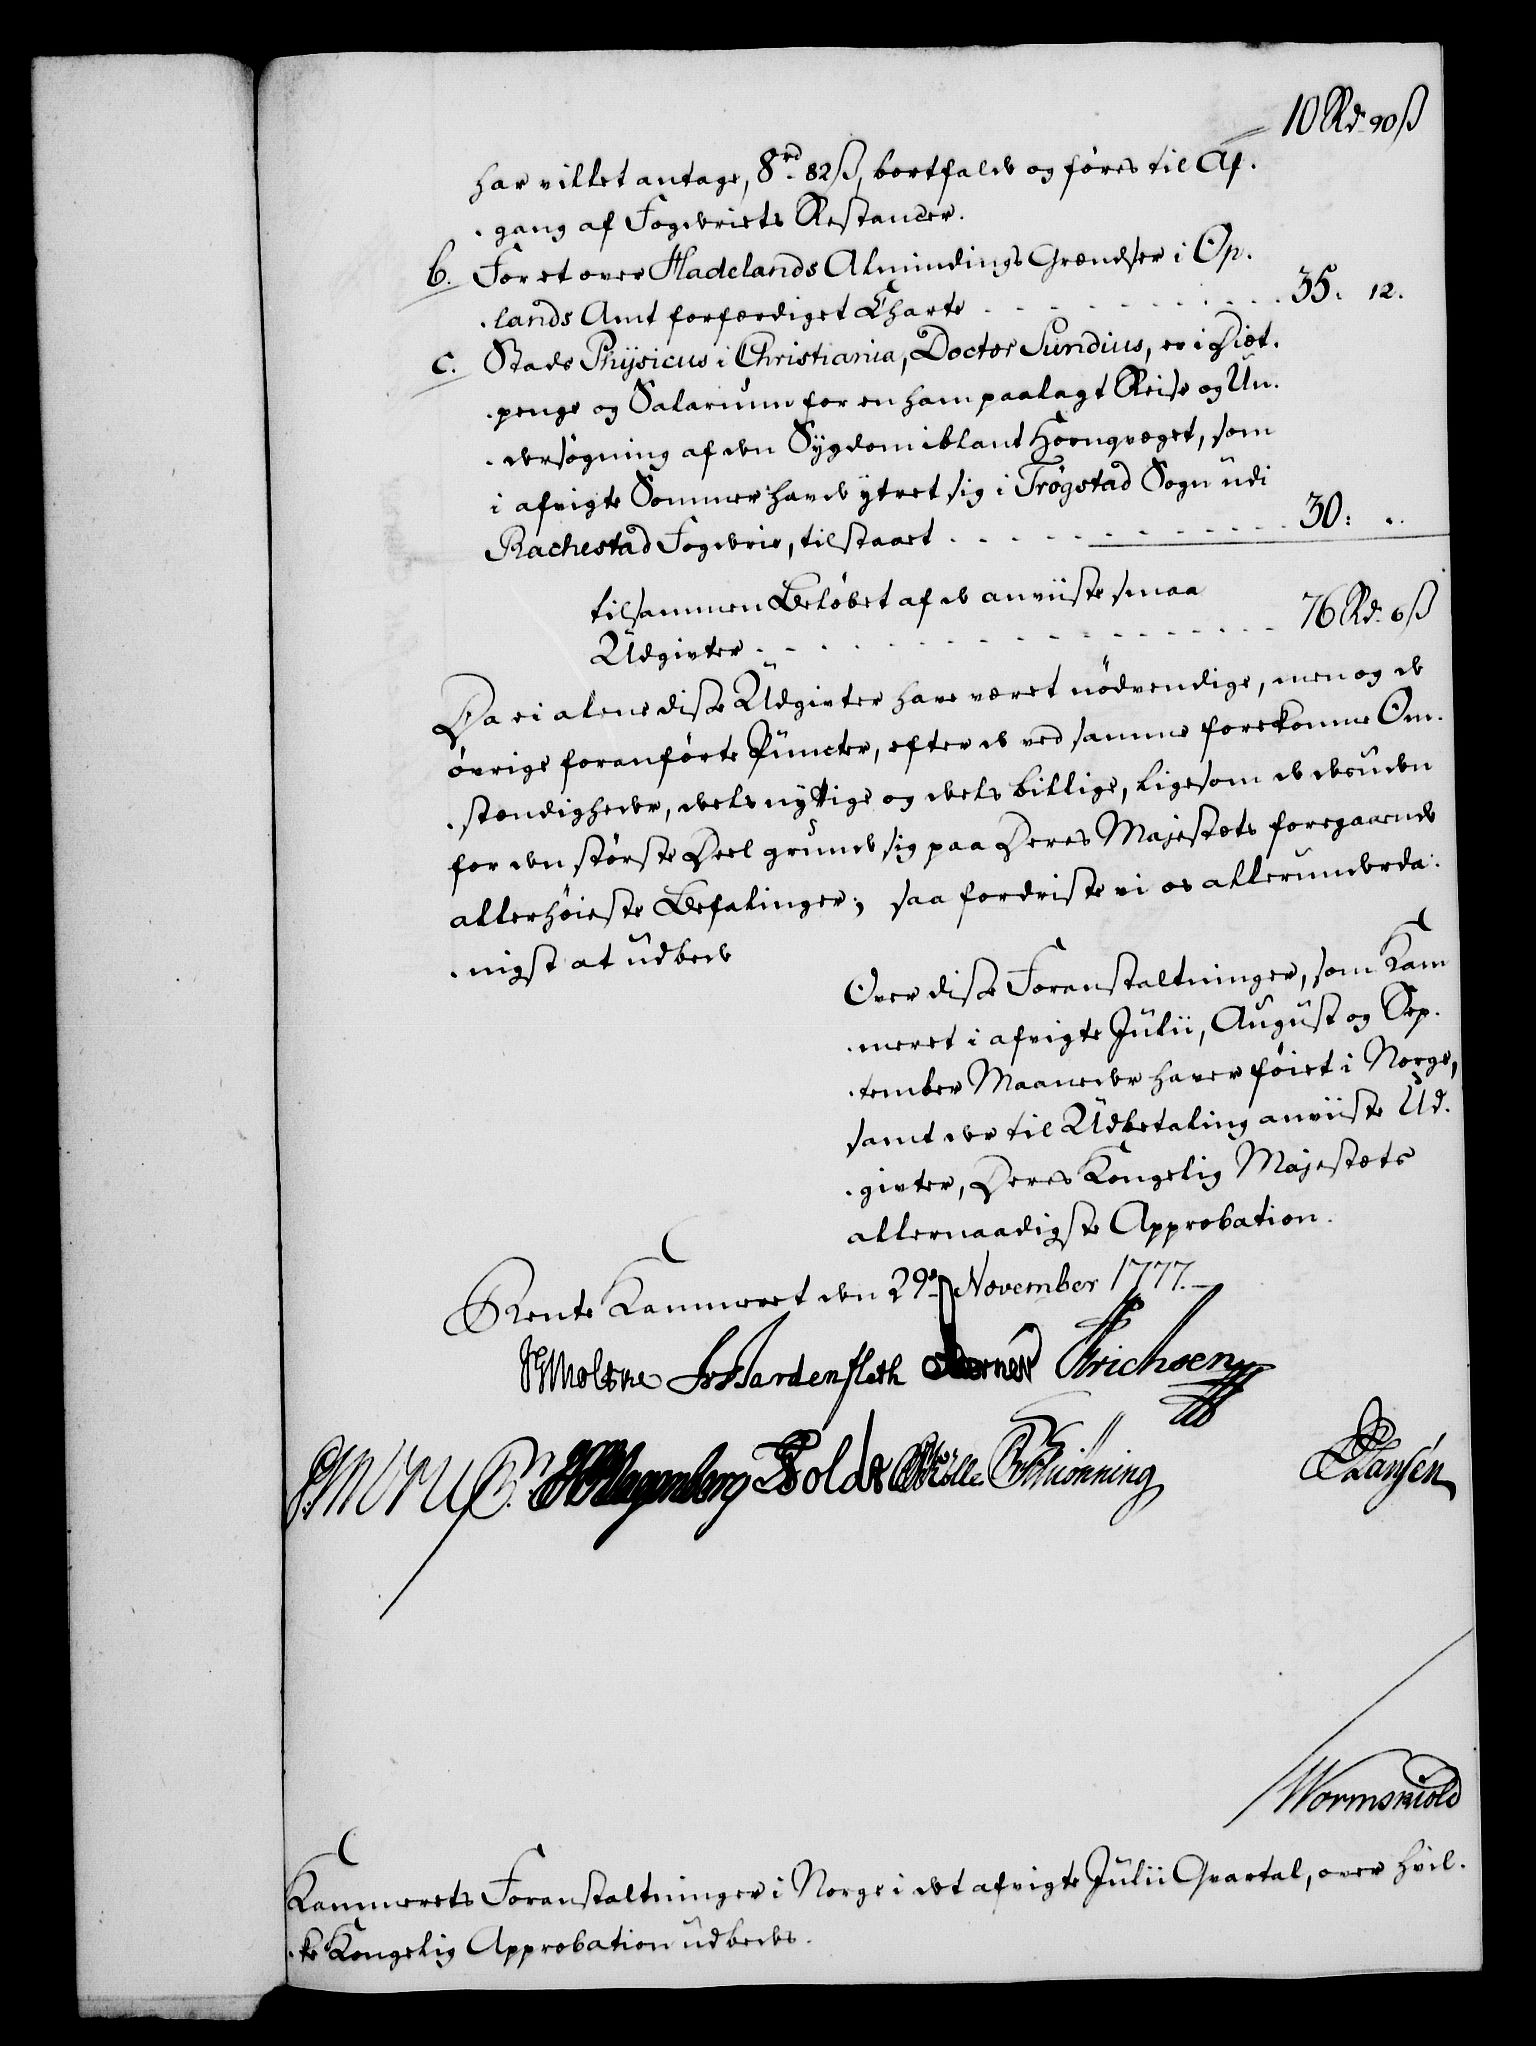 10 Rd. 90 ß
har villet antage, 8 rd. 82 ß, bortfalde og føres til Af-
-gang af Fogderiets Restancer.
b. For et over Hadelands Almindings Grændser i Op-
-lands Amt forfærdiget Charte . . . . . . . 35: 12.
c. Stads Physicus i Christiania, Doctor Sundius, er i Diæt-
-penge og Salarium for en ham paalagt Reise og Un-
-dersøgning af den Sygdom iblant Hornqvæget, som
i afvigte Sommer havde ytret sig i Trøgstad Sogn udi
Rachestad Fogderie, tilstaaet . . . . . . . 30: ..
tilsammen Beløbet af de anviiste smaa
Udgivter . . . . . . . 76 Rd. 6 ß
Da ei alene disse Udgivter have været nödvendige, men og de
øvrige foranførte Puncter, efter de ved samme forekomne Om-
-stændigheder, deels nyttige og deels billige, ligesom de desuden
for den største Deel grunde sig paa Deres Majestæts foregaaende
allerhøieste Befalinger; saa fordriste vi os allerunderda-
-nigst at udbede
Over disse Foranstaltninger, som Kam
-meret i afvigte Julii, August og Sep-
-tember Maaneder haver føiet i Norge,
samt der til Udbetaling anviiste Ud-
-givter, Deres Kongelig Majestæts
allernaadigste Approbation.
Rente Kammeret den 29de November 1777.
HGMoltke Hardenfleth Berner Erichsen
Wagenberg Holde Müller Schiønning CHansen
Wormskiold
Kammerets Foranstaltninger i Norge i det afvigte Julii Qvartal, over hvil-
-ke Kongelig Approbation udbedes.